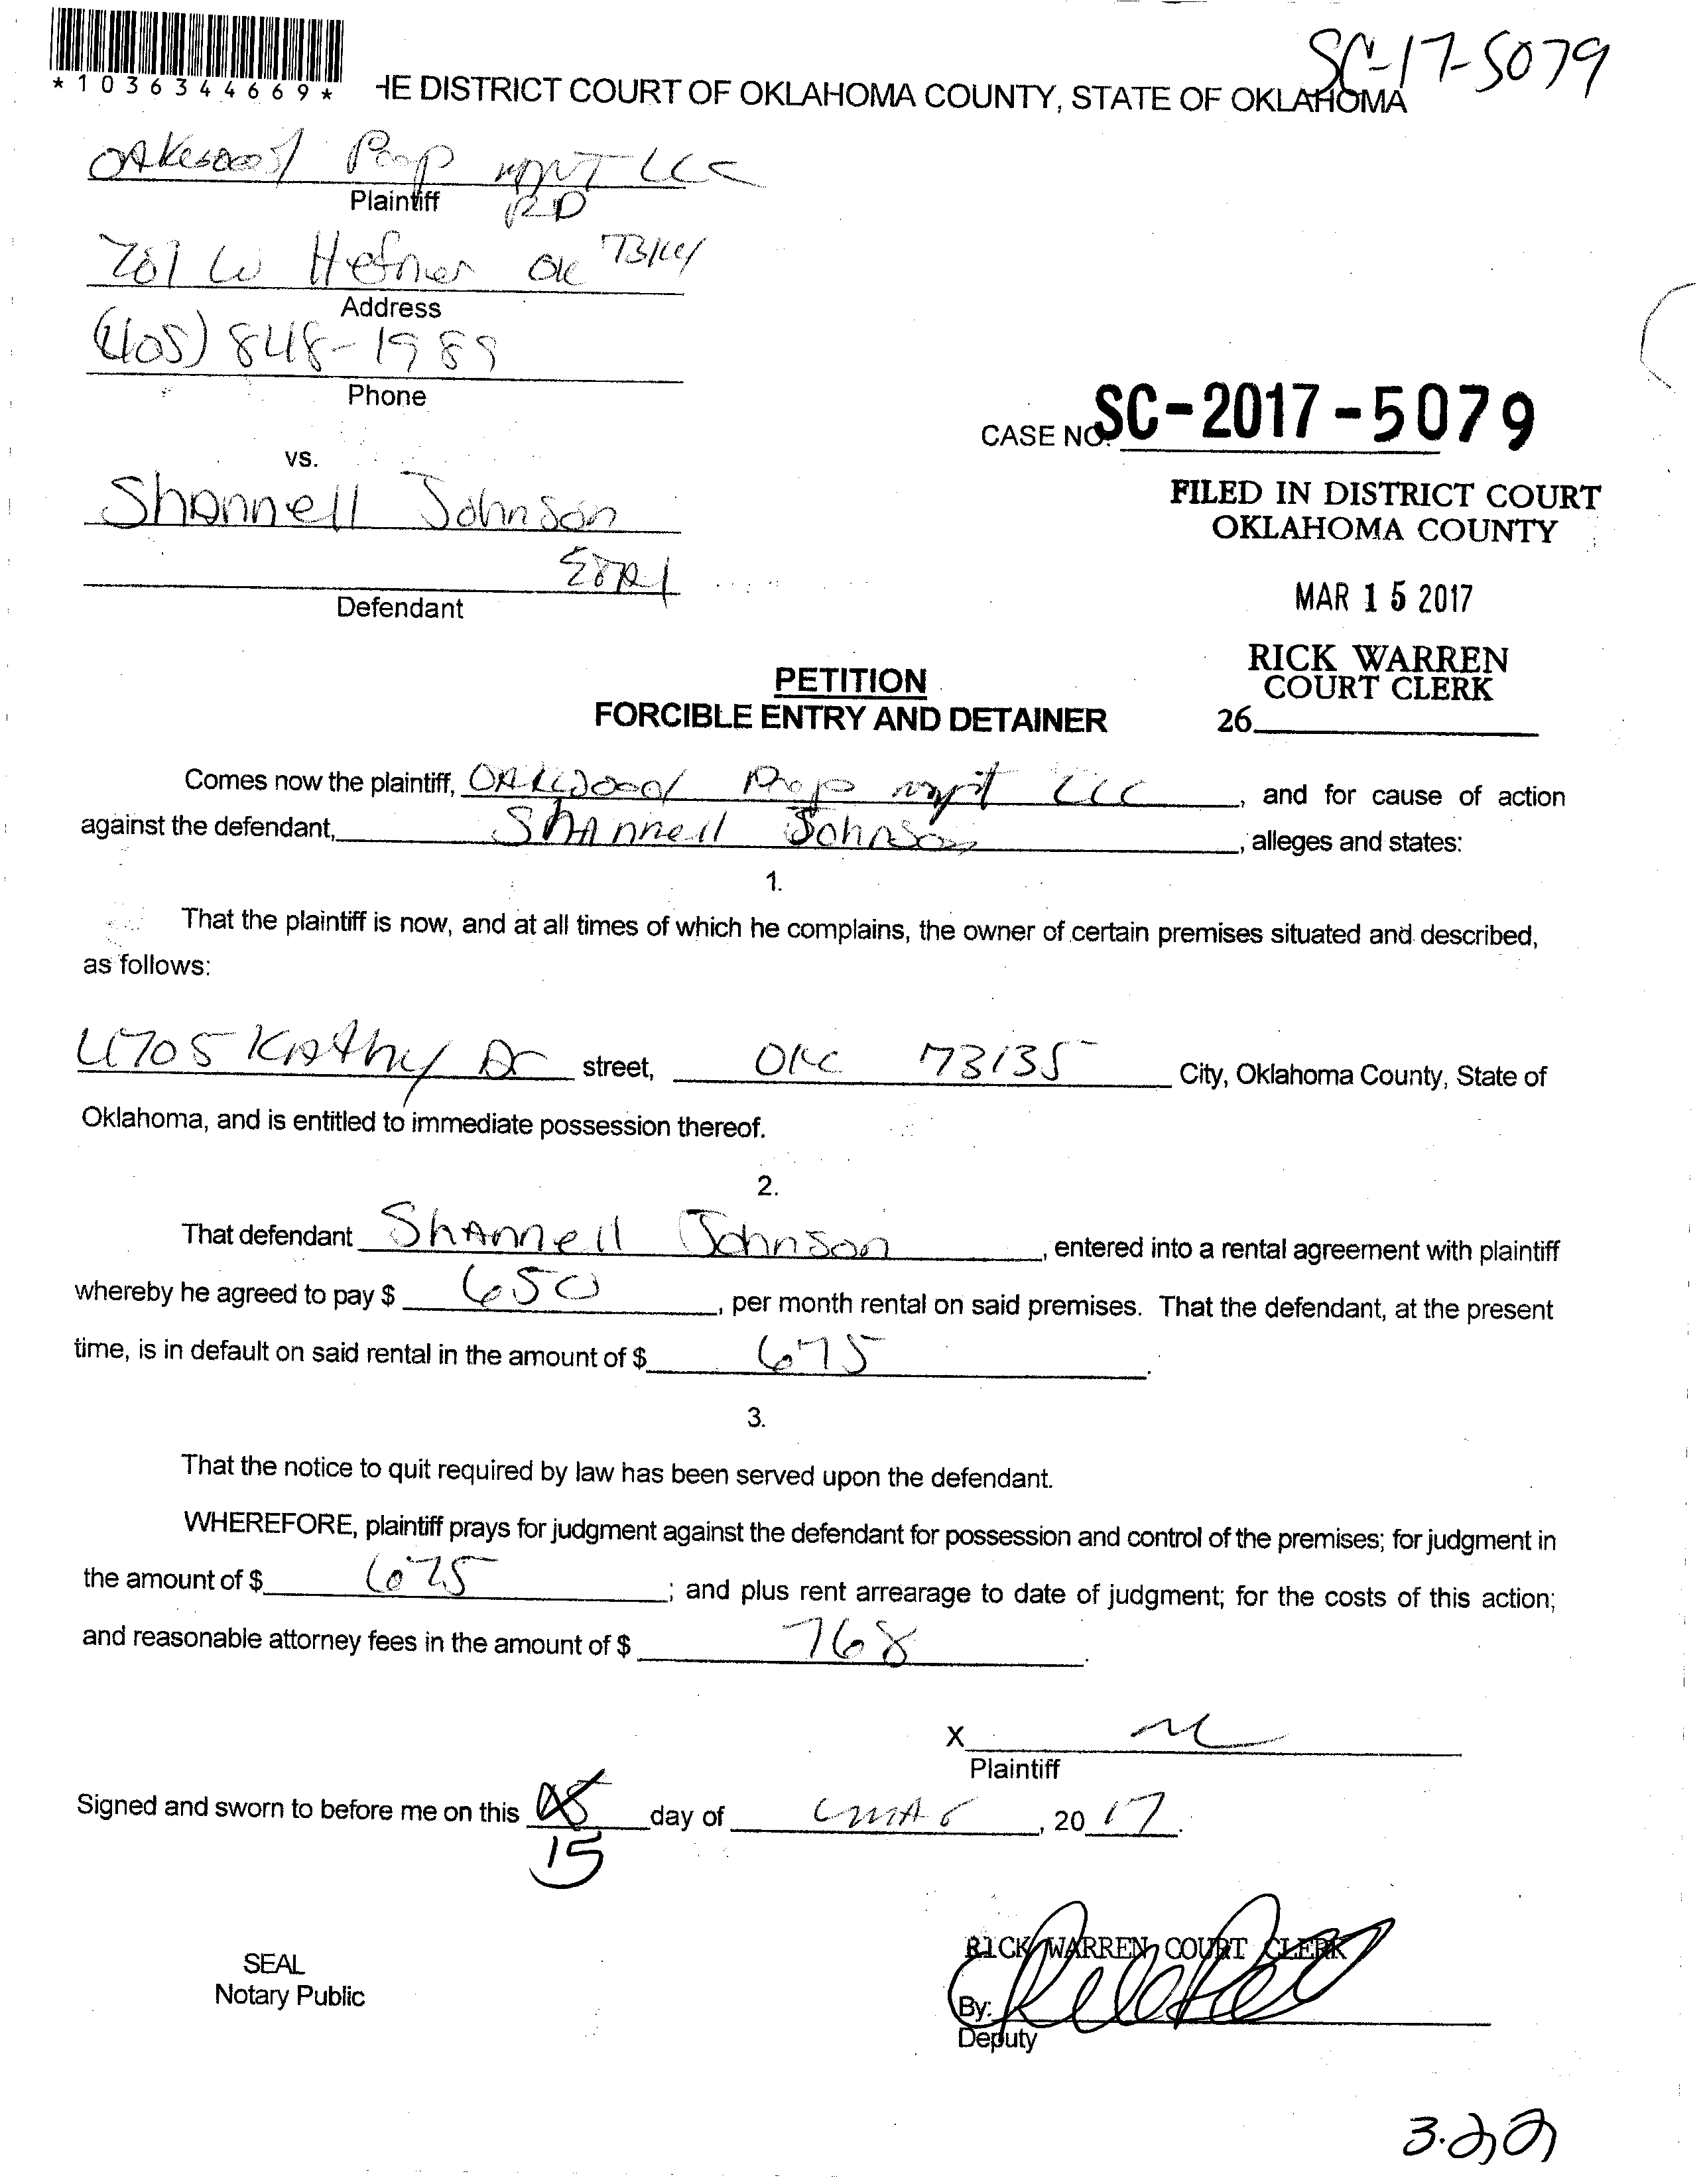 SC-17-5079
*1036344669*
HE DISTRICT COURT OF OKLAHOMA COUNTY, STATE OF OKLAHOMA
OAKwood Prop mgnt LLC
Plaintiff
RD
701 W Hefner OK
Address
(405) 848-1989
Phone
CASE NO. SC-2017-5079
vs.
FILED IN DISTRICT COURT
OKLAHOMA COUNTY
Shannell Johnson
Defendant
MAR 15 2017
RICK WARREN
COURT CLERK
PETITION
FORCIBLE ENTRY AND DETAINER
26
Comes now the plaintiff, OAKWood Prop mgnt LLC, and for cause of action
against the defendant, SHAnnell Johnson, alleges and states:
1.
That the plaintiff is now, and at all times of which he complains, the owner of certain premises situated and described,
as follows:
4705 KAthy Dr street, OKC 73135 City, Oklahoma County, State of
Oklahoma, and is entitled to immediate possession thereof.
2.
That defendant SHAnnell Johnson, entered into a rental agreement with plaintiff
whereby he agreed to pay $ 650, per month rental on said premises. That the defendant, at the present
time, is in default on said rental in the amount of $ 675.
3.
That the notice to quit required by law has been served upon the defendant.
WHEREFORE, plaintiff prays for judgment against the defendant for possession and control of the premises; for judgment in
the amount of $ 675; and plus rent arrearage to date of judgment; for the costs of this action;
and reasonable attorney fees in the amount of $ 768.
X
Plaintiff
Signed and sworn to before me on this day of mAr, 20 17.
15
SEAL
Notary Public
RICK WARREN COURT CLERK
By:
Deputy